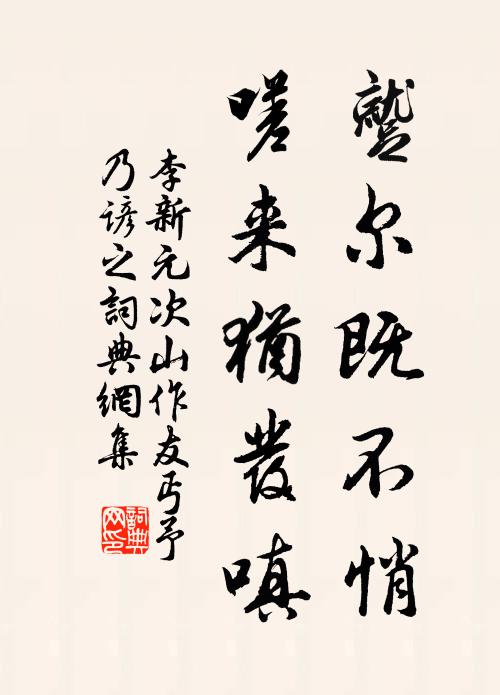 蹵尔既不悄
嗟来猶發嗔
李新元次山作友丐予
乃谚之詞典網集
詞典
网印